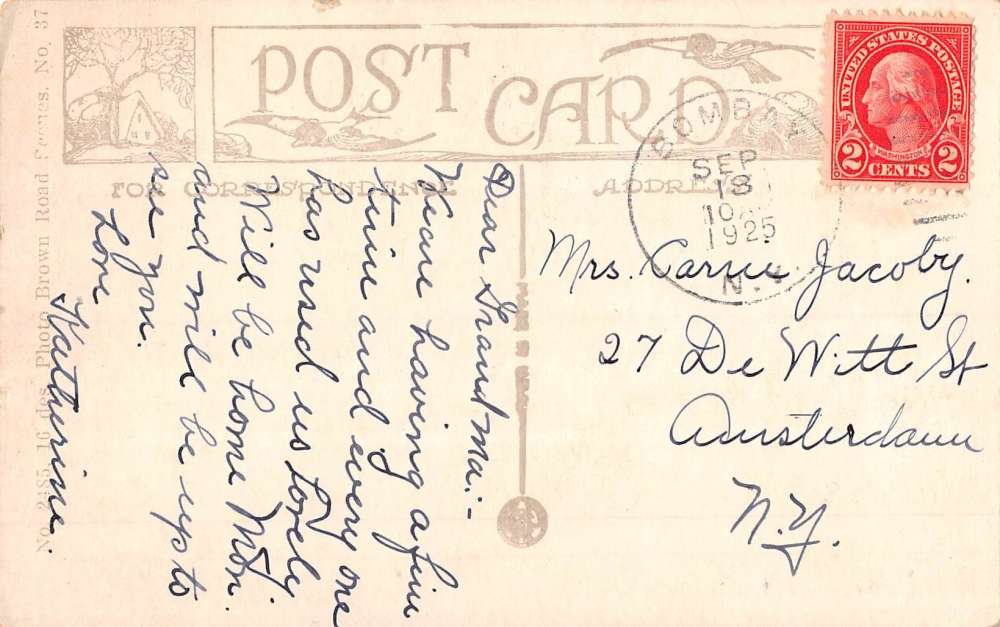 POST CARD
FOR CORRESPONDENCE
ADDRESS
BOMBAY
SEP
18
1925
N.Y.
UNITED STATES POSTAGE
WASHINGTON
2 CENTS 2
Dear Grandma:-
We are having a fine
time and every one
has used us lovely
Will be home Mon.
and will be up to
see you.
Love
Katherine.
Mrs. Carrie Jacoby.
27 De Witt St
Amsterdam
N.Y.
No. 2485. 16 des. Photo Brown Road Scenes. No. 37